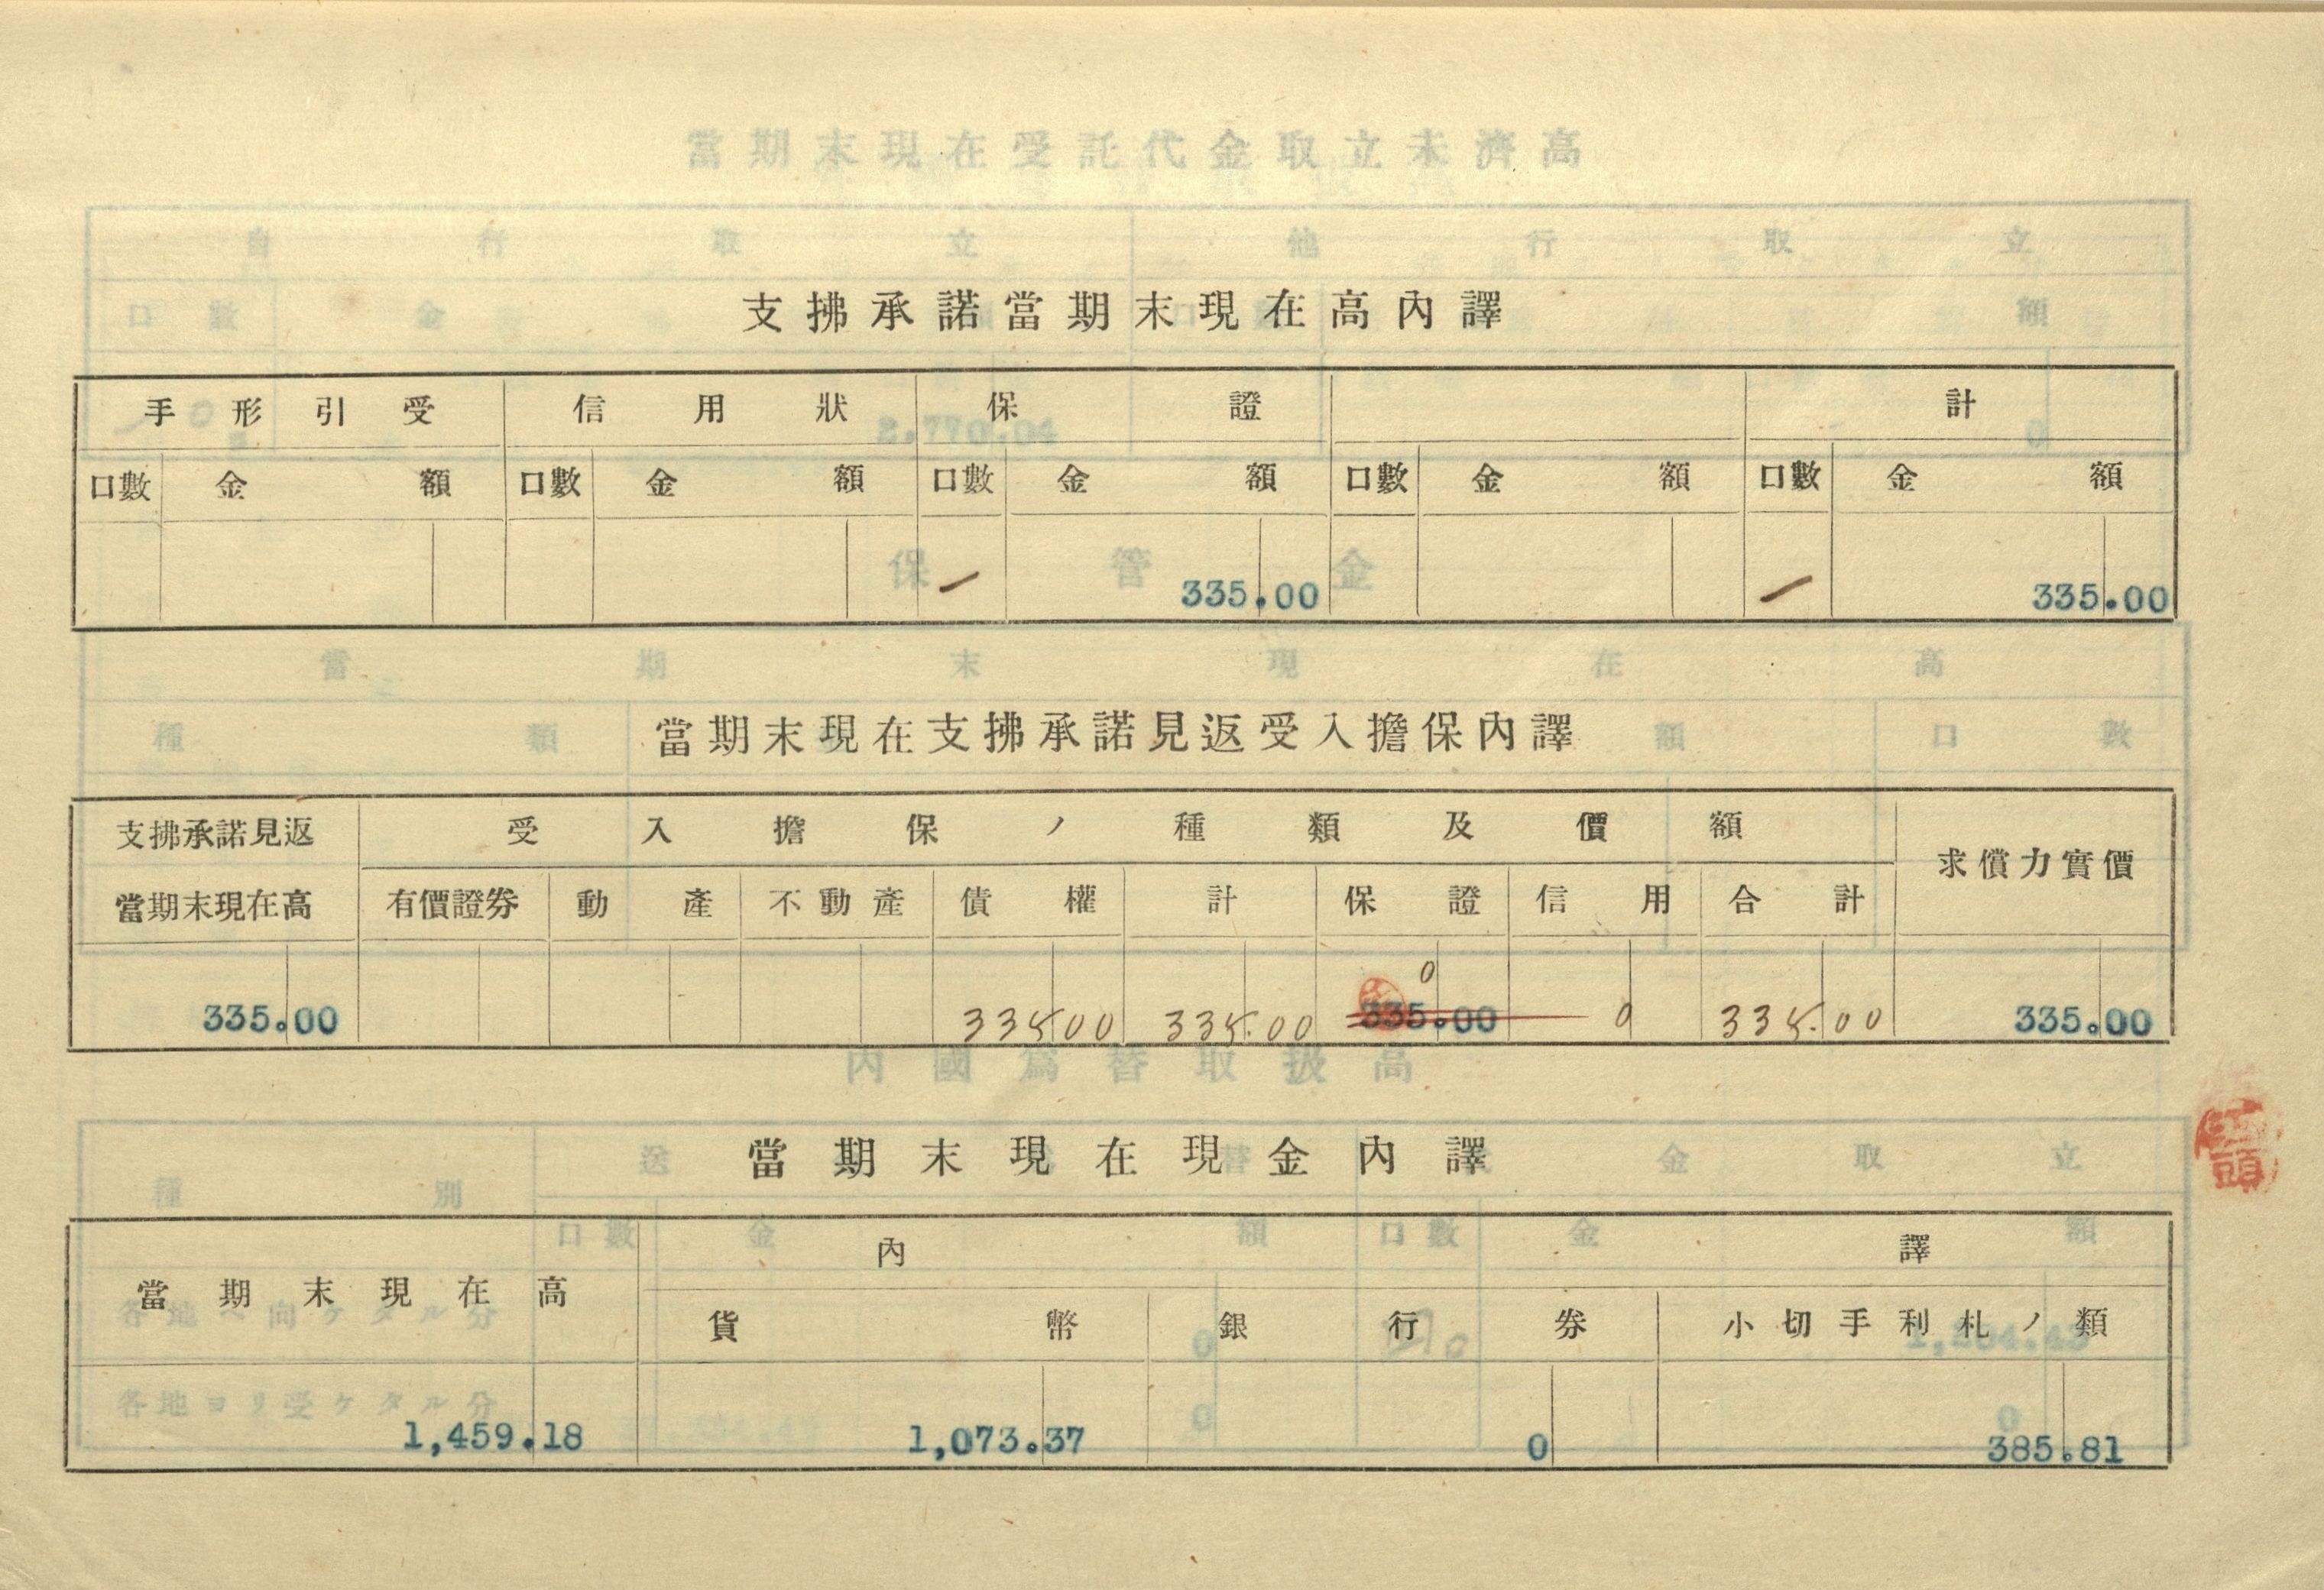 支拂承諾當期末現在高內譯
手形引受 信用狀 保證 計
口數 金額 口數 金額 口數 金額 口數 金額 口數 金額
一 335.00 一 335.00
當期末現在支拂承諾見返受入擔保內譯
支拂承諾見返 受入擔保ノ種類及價額 求償力實價
當期末現在高 有價證券 動產 不動產 債權 計 保證 信用 合計
0
335.00 335.00 335.00 335.00 0 335.00 335.00
當期末現在現金內譯
當期末現在高 內譯
貨幣 銀行券 小切手利札ノ類
1,459.18 1,073.37 0 385.81